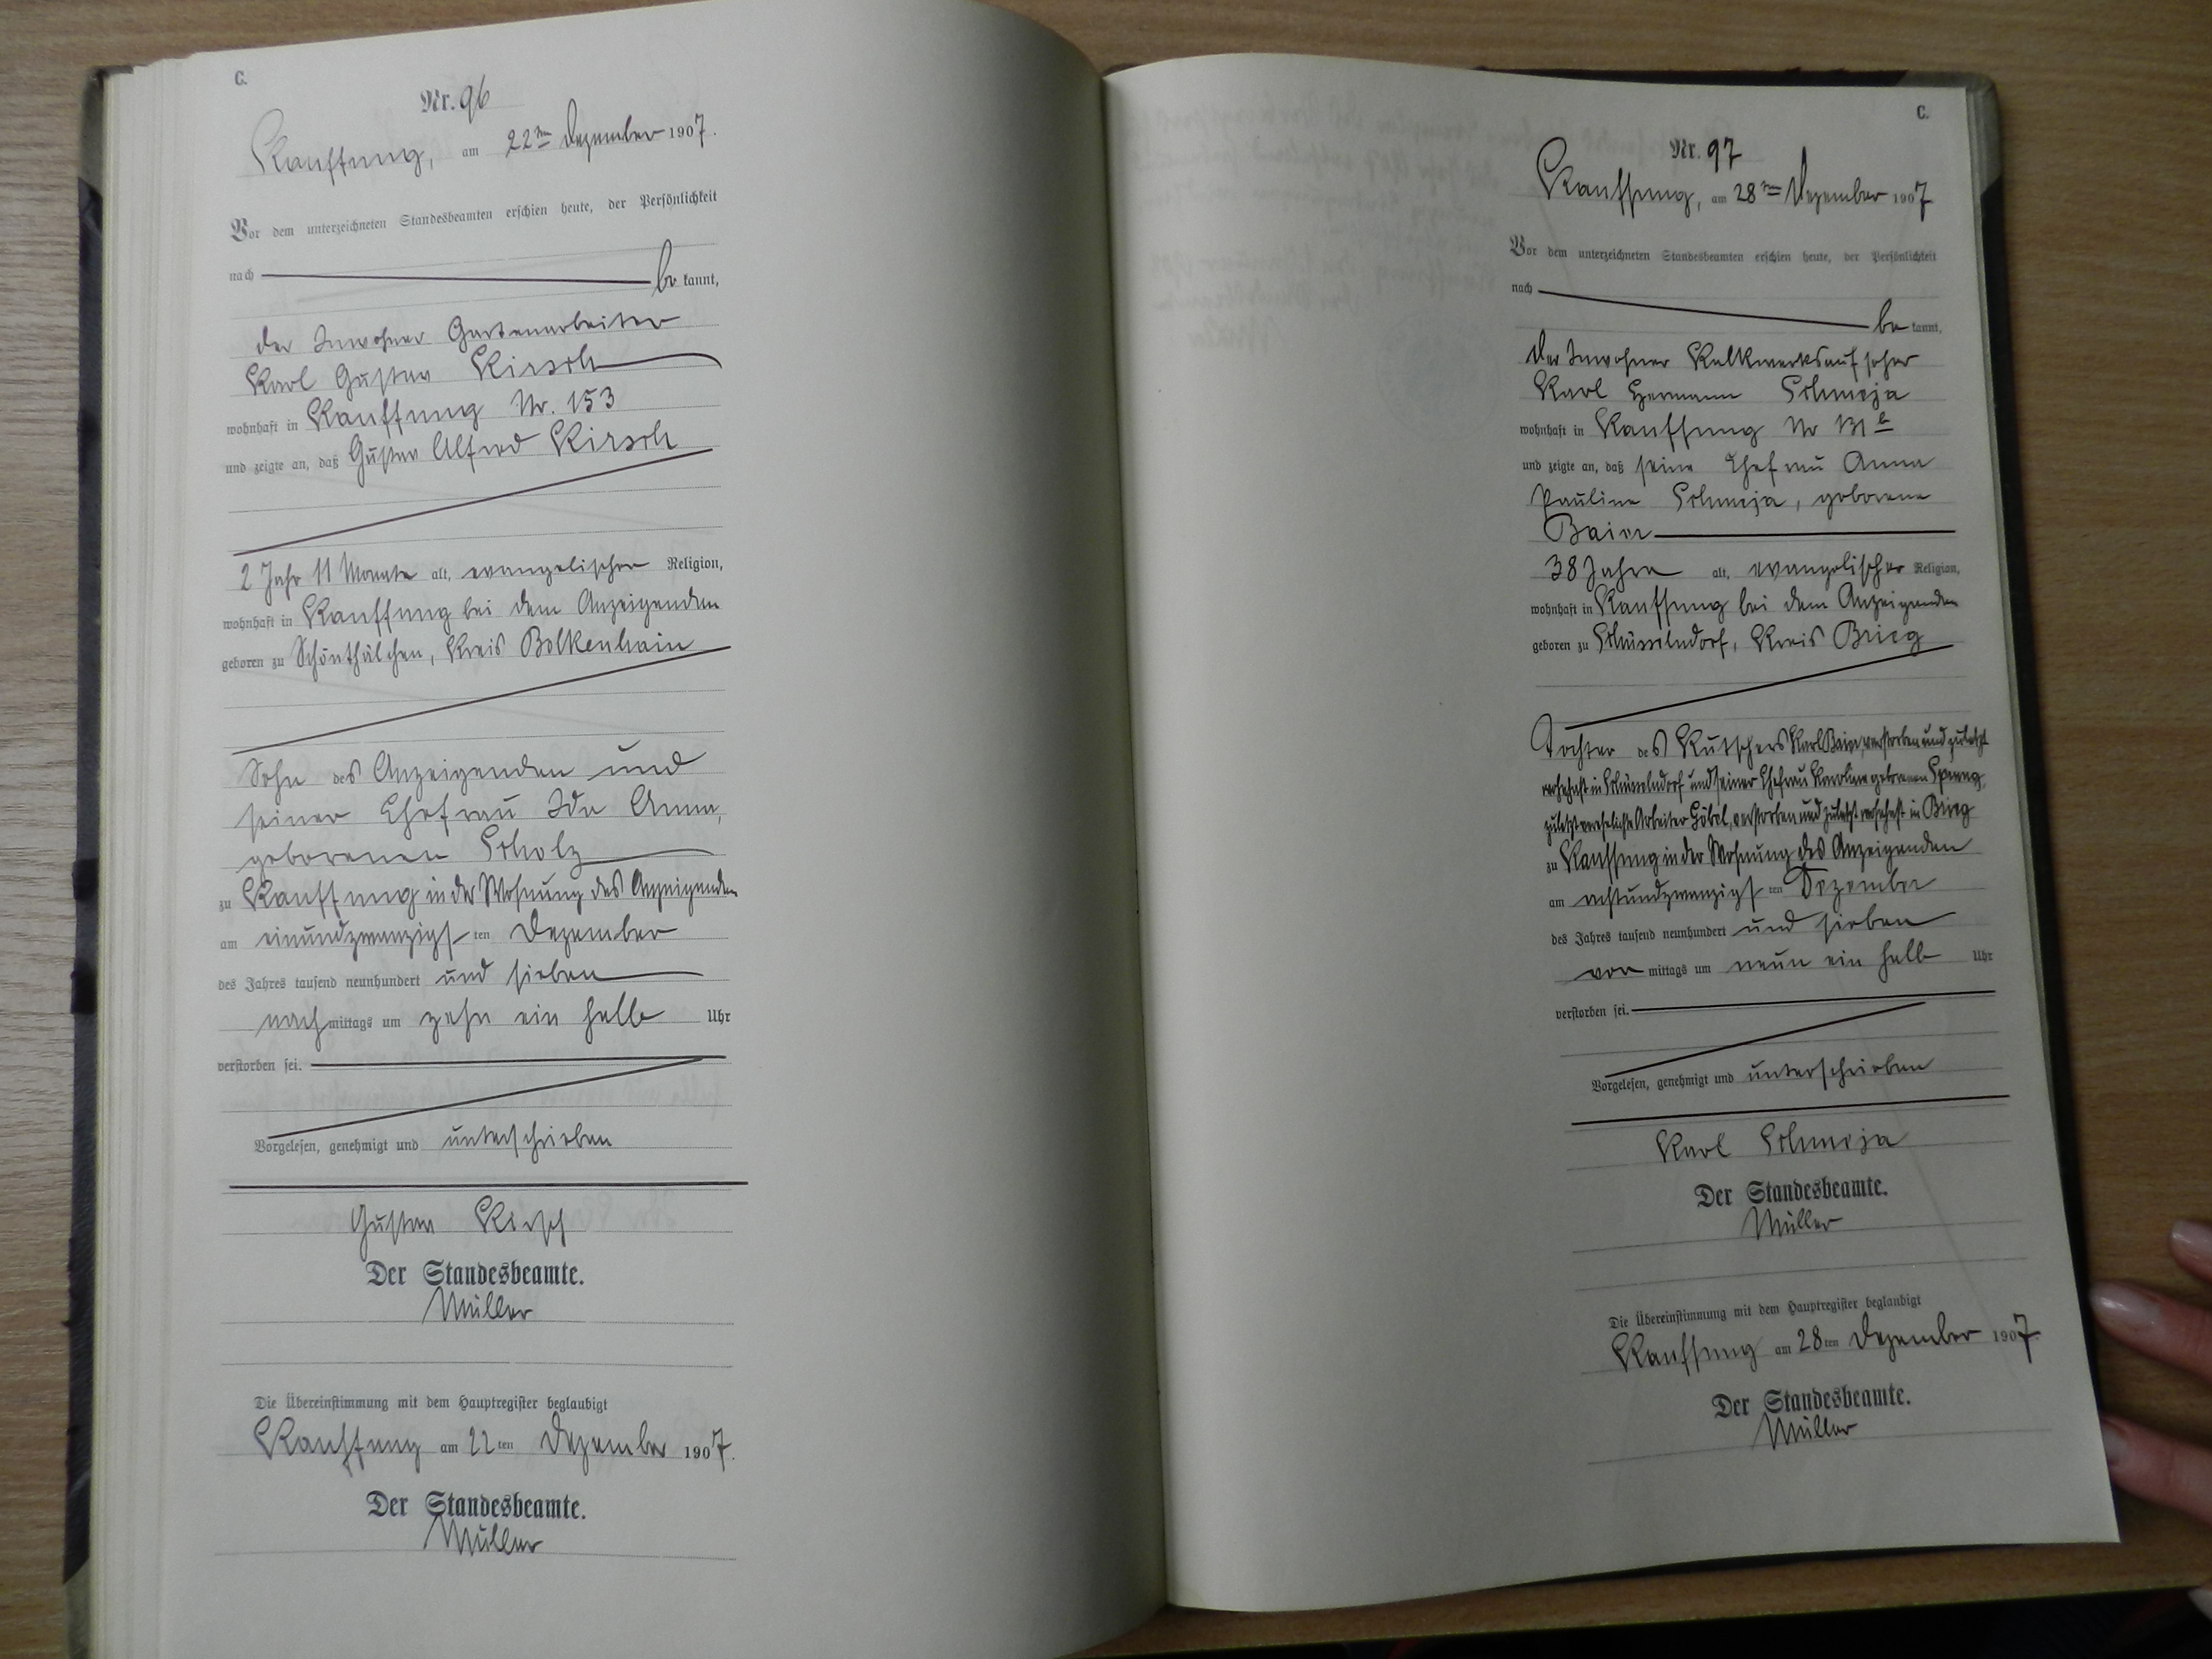 C.
Nr. 96
Kauffung, am 22ten Dezember 1907.
Vor dem unterzeichneten Standesbeamten erschien heute, der Persönlichkeit
nach be kannt,
der Inwohner Gartenarbeiter
Karl Gustav Kirsch
wohnhaft in Kauffung Nr. 153
und zeigte an, daß Gustav Alfred Kirsch
2 Jahr 11 Monate alt, evangelischer Religion,
wohnhaft in Kauffung bei dem Anzeigenden
geboren zu Schönthälchen, Kreis Bolkenhain
Sohn des Anzeigenden und
seiner Ehefrau Ida Anna,
geborenen Scholz
zu Kauffung in der Wohnung des Anzeigenden
am einundzwanzigsten Dezember
des Jahres tausend neunhundert und sieben
nachmittags um zehn ein halb Uhr
verstorben sei.
Vorgelesen, genehmigt und unterschrieben
Gustav Kirsch
Der Standesbeamte.
Müller
Die Übereinstimmung mit dem Hauptregister beglaubigt
Kauffung am 22ten Dezember 1907.
Der Standesbeamte.
Müller
C.
Nr. 97
Kauffung, am 28ten Dezember 1907
Vor dem unterzeichneten Standesbeamten erschien heute, der Persönlichkeit
nach
be kannt,
der Inwohner Kalkwerksaufseher
Karl Hermann Schmeja
wohnhaft in Kauffung Nr
und zeigte an, daß seine Ehefrau Anna
Pauline Schmeja, geborene
Baier
38 Jahre alt, evangelischer Religion,
wohnhaft in Kauffung bei dem Anzeigenden
geboren zu Schüsselndorf, Kreis Brieg
Tochter des Kutschers Karl Baier, verstorben und zuletzt
wohnhaft in Schüsselndorf und seiner Ehefrau Karoline geborenen
zuletzt verehelichte Arbeiter Göbel, verstorben und zuletzt wohnhaft in Brieg
zu Kauffung in der Wohnung des Anzeigenden
am achtundzwanzigsten Dezember
des Jahres tausend neunhundert und sieben
vormittags um neun ein halb Uhr
verstorben sei.
Vorgelesen, genehmigt und unterschrieben
Karl Schmeja
Der Standesbeamte.
Müller
Die Übereinstimmung mit dem Hauptregister beglaubigt
Kauffung am 28ten Dezember 1907.
Der Standesbeamte.
Müller